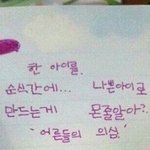 한 아이를.
순쓰간에... 나쁜아이로
만드는게 몬줄알아?
'어른들의 의심'